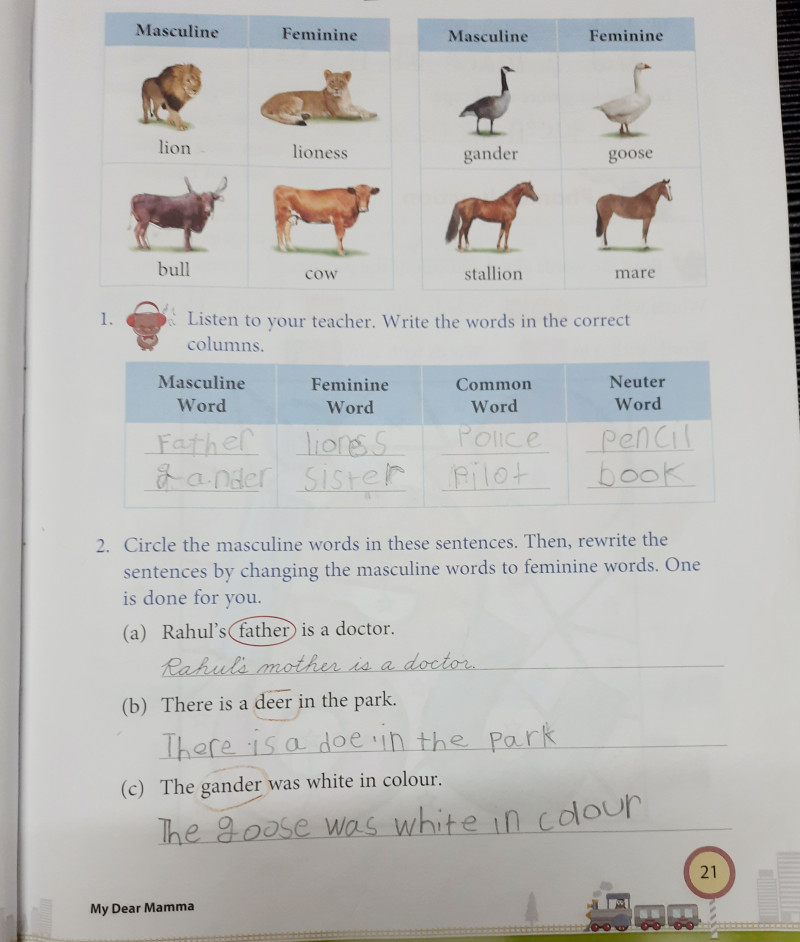 Masculine Feminine Masculine Feminine
lion lioness gander goose
bull cow stallion mare
1. Listen to your teacher. Write the words in the correct
columns.
Masculine Feminine Common Neuter
Word Word Word Word
Father lioness Police pencil
gander sister Pilot book
2. Circle the masculine words in these sentences. Then, rewrite the
sentences by changing the masculine words to feminine words. One
is done for you.
(a) Rahul's father is a doctor.
Rahul's mother is a doctor.
(b) There is a deer in the park.
There is a doe in the park
(c) The gander was white in colour.
The goose was white in colour
21
My Dear Mamma